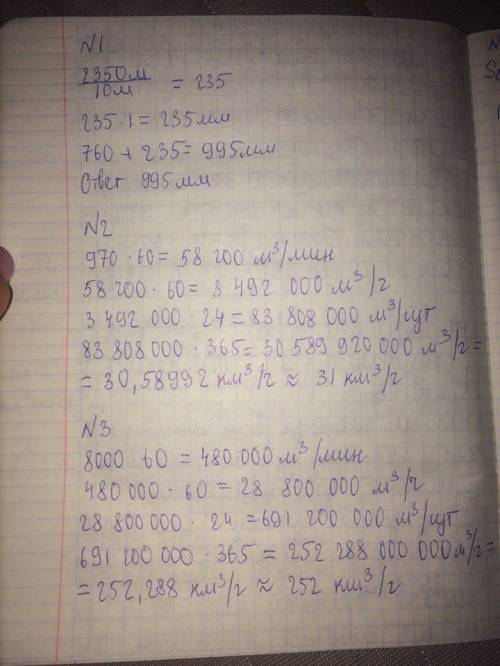 N1
2350м
10м = 235
235·1 = 235мм
760 + 235 = 995мм
Ответ 995мм
N2
970 · 60 = 58 200 м³/мин
58 200 · 60 = 3 492 000 м³/ч
3 492 000 · 24 = 83 808 000 м³/сут
83 808 000 · 365 = 30 589 920 000 м³/г =
= 30,58992 км³/г ≈ 31 км³/г
N3
8000 · 60 = 480 000 м³/мин
480 000 · 60 = 28 800 000 м³/ч
28 800 000 · 24 = 691 200 000 м³/сут
691 200 000 · 365 = 252 288 000 000 м³/г =
= 252,288 км³/г ≈ 252 км³/г